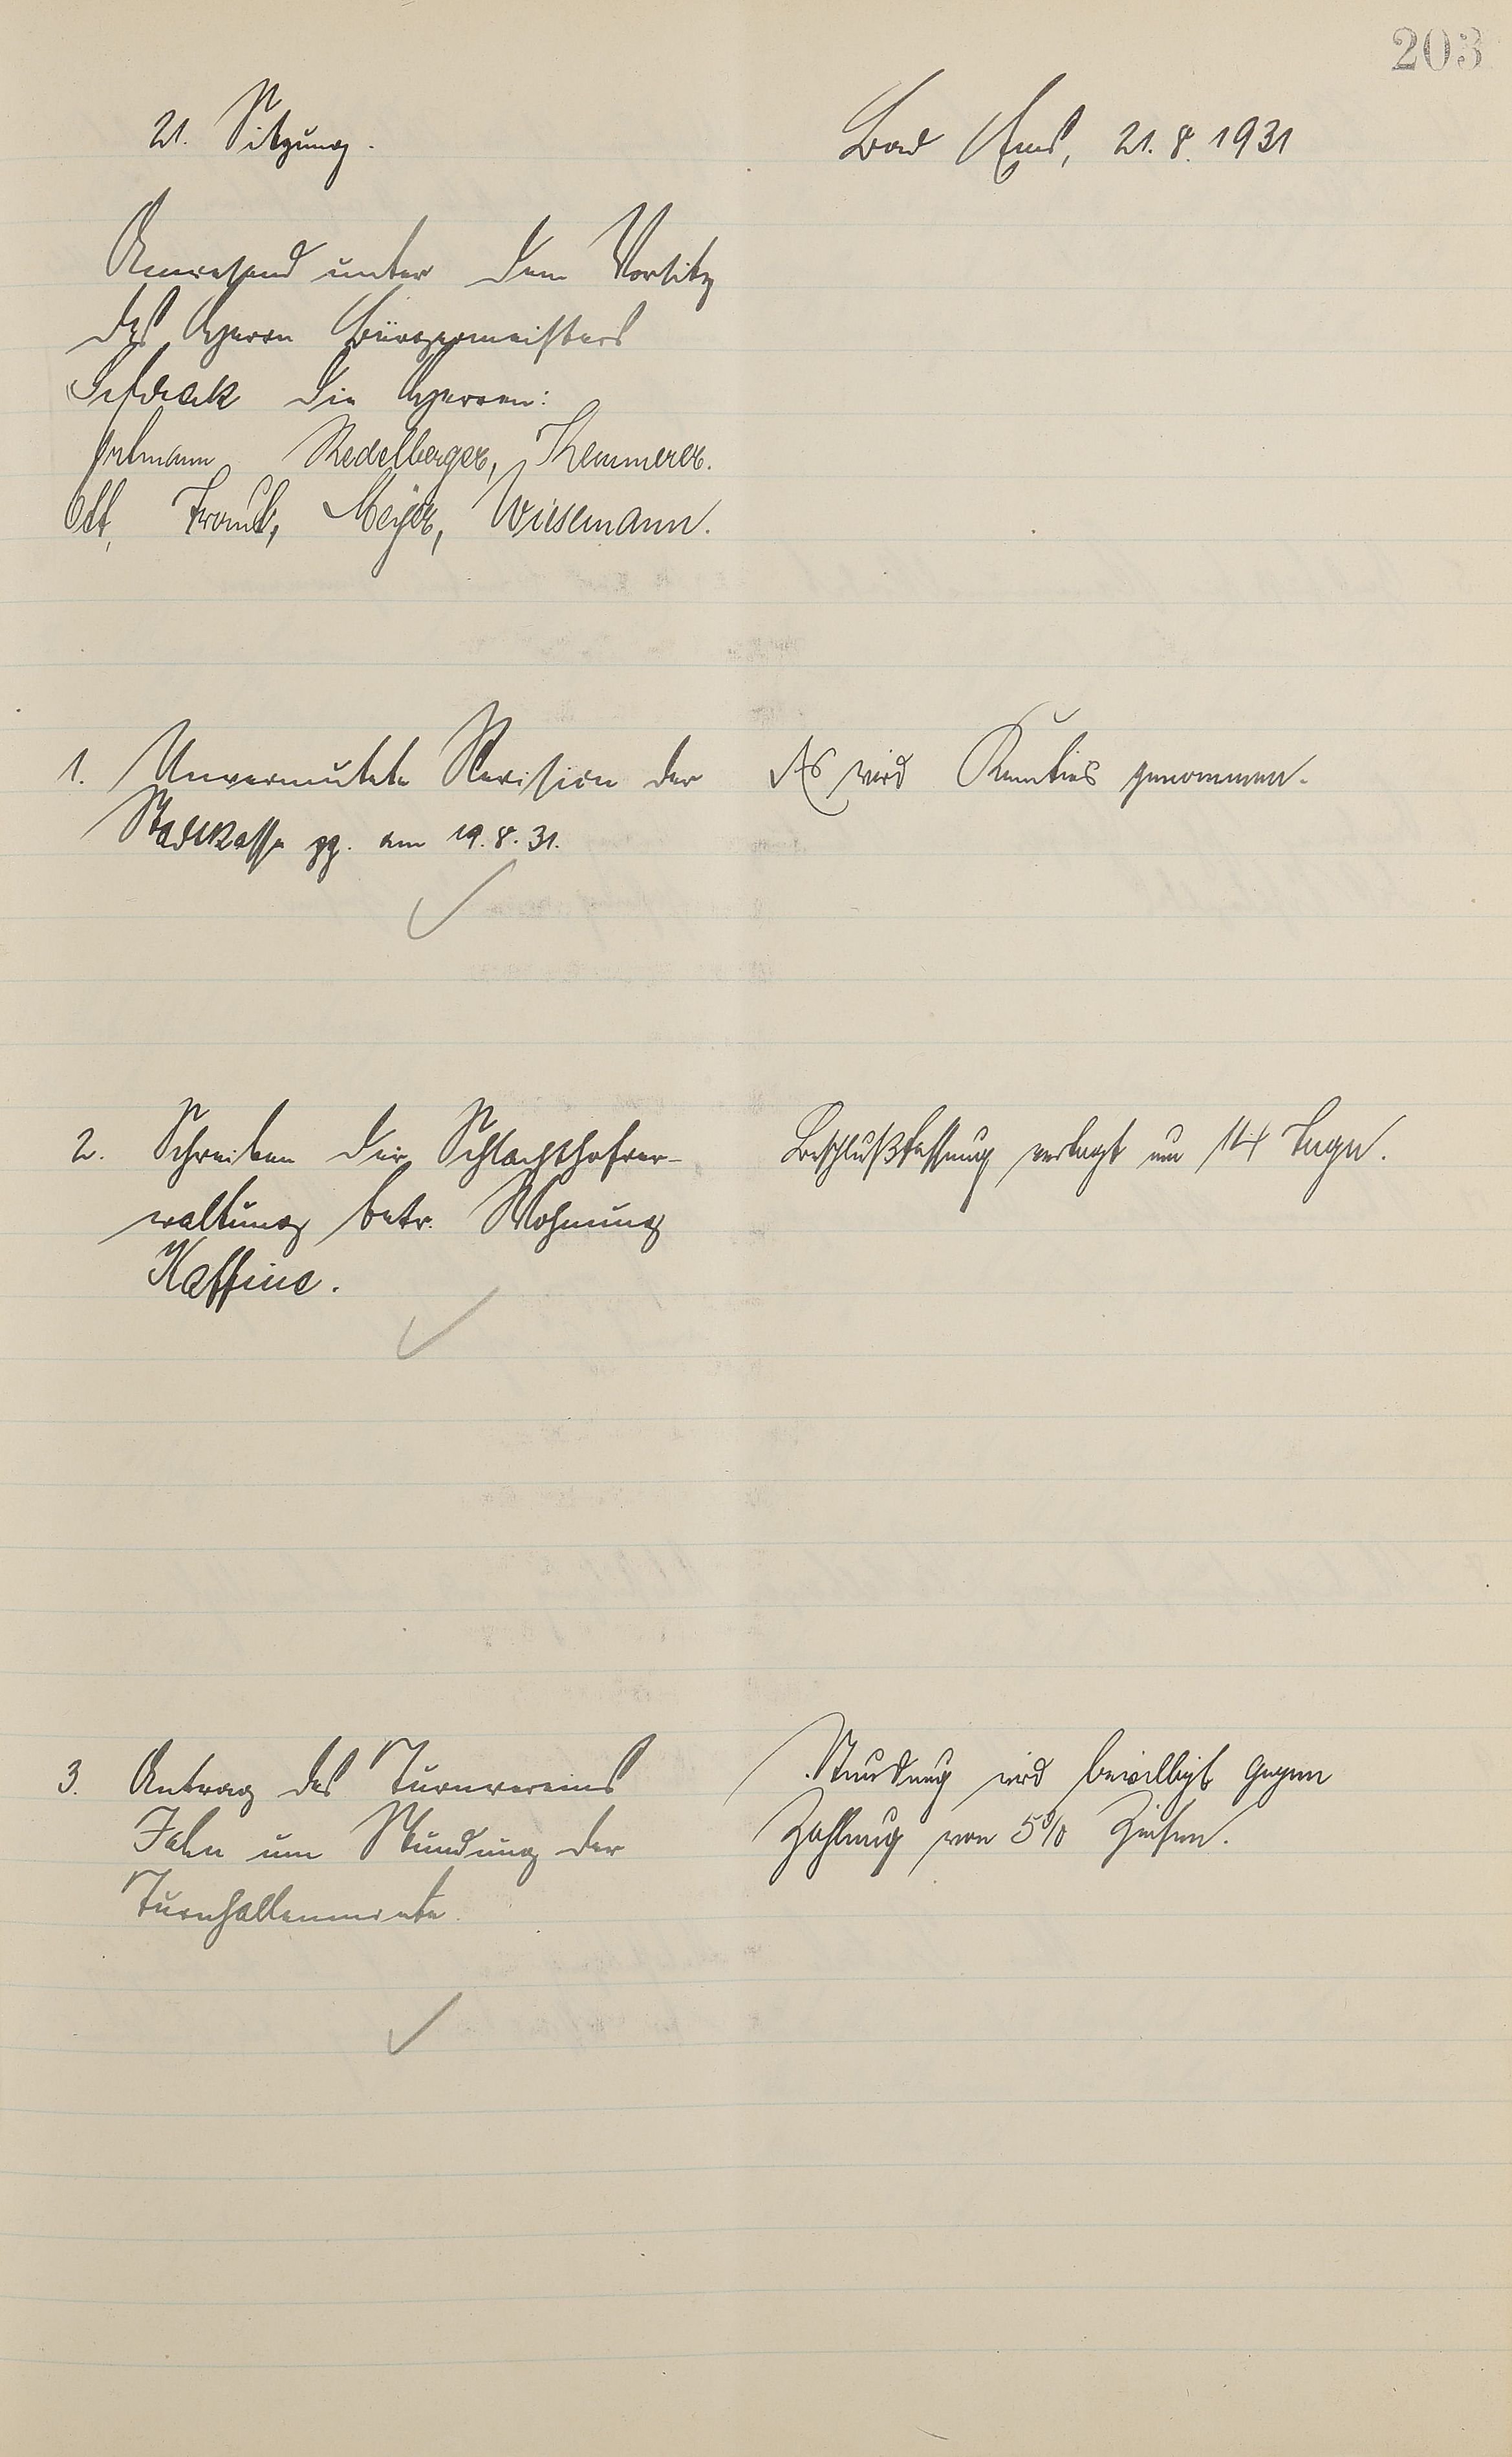 203
21. Sitzung.
Bad Ems, 21.8.1931
Anwesend unter dem Vorsitz
des Herrn Bürgermeisters
die Herren:
Redelberger, Kemmerer.
Ott, Meyer, Wiesemann.
1. Unvermutete Revision der
Stadtkasse gg. am 19.8.31.
Es wird Kenntnis genommen.
2. Schreiben der Schlachthofver-
waltung betr. Wohnung
Kaffine.
Beschlußfassung vertagt um 14 Tage.
3. Antrag des Turnvereins
Jahn um Stundung der
Turnhallenmiete.
Stundung wird bewilligt gegen
Zahlung von 5% Zinsen.